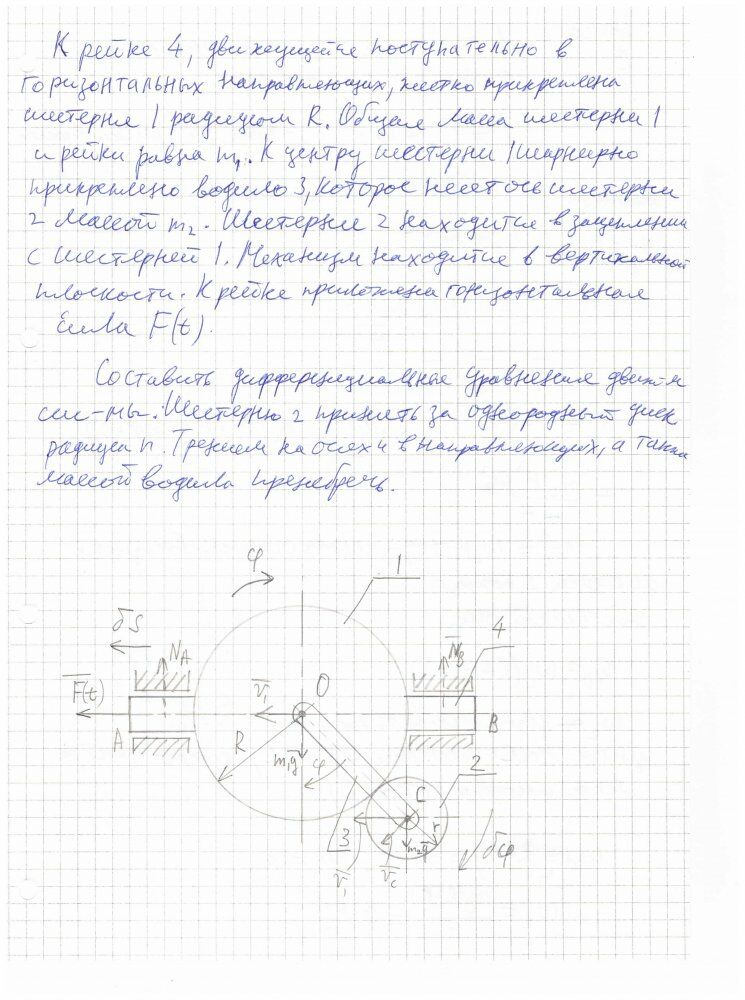 К рейке 4, движущейся поступательно в
горизонтальных направляющих, жестко прикреплена
шестерня 1 радиусом R. Общая масса шестерни 1
и рейки равна m₁. К центру шестерни 1 шарнирно
прикреплено водило 3, которое несет ось шестерни
2 массой m₂. Шестерня 2 находится в зацеплении
с шестерней 1. Механизм находится в вертикальной
плоскости. К рейке приложена горизонтальная
сила F(t).
Составить дифференциальные уравнения движ-я
сис-мы. Шестерню 2 принять за однородный диск
радиуса r. Трением на осях и в направляющих, а также
массой водила пренебречь.
φ
1
δS
N_A
N_B
4
F(t)
v₁
O
A
B
R
m₁g
φ
2
C
3
r
m₂g
v₁
v_c
δφ